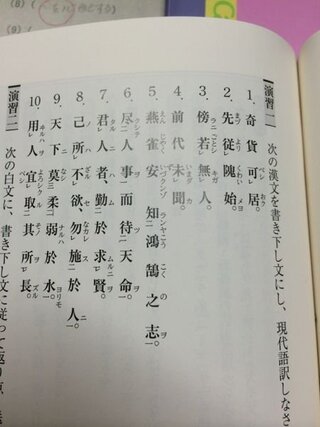 演習一　次の漢文を書き下し文にし、現代語訳しなさ
1．奇貨可居。
2．先従隗始。
3．傍若無人。
4．前代未聞。
5．燕雀安知鴻鵠之志。
6．尽人事而待天命。
7．君人者、勤於求賢。
8．己所不欲、勿施於人。
9．天下莫柔弱於水。
10．用人宜取其所長。
演習二　次の白文に、書き下し文に従って返り点、送
(8)
(9)